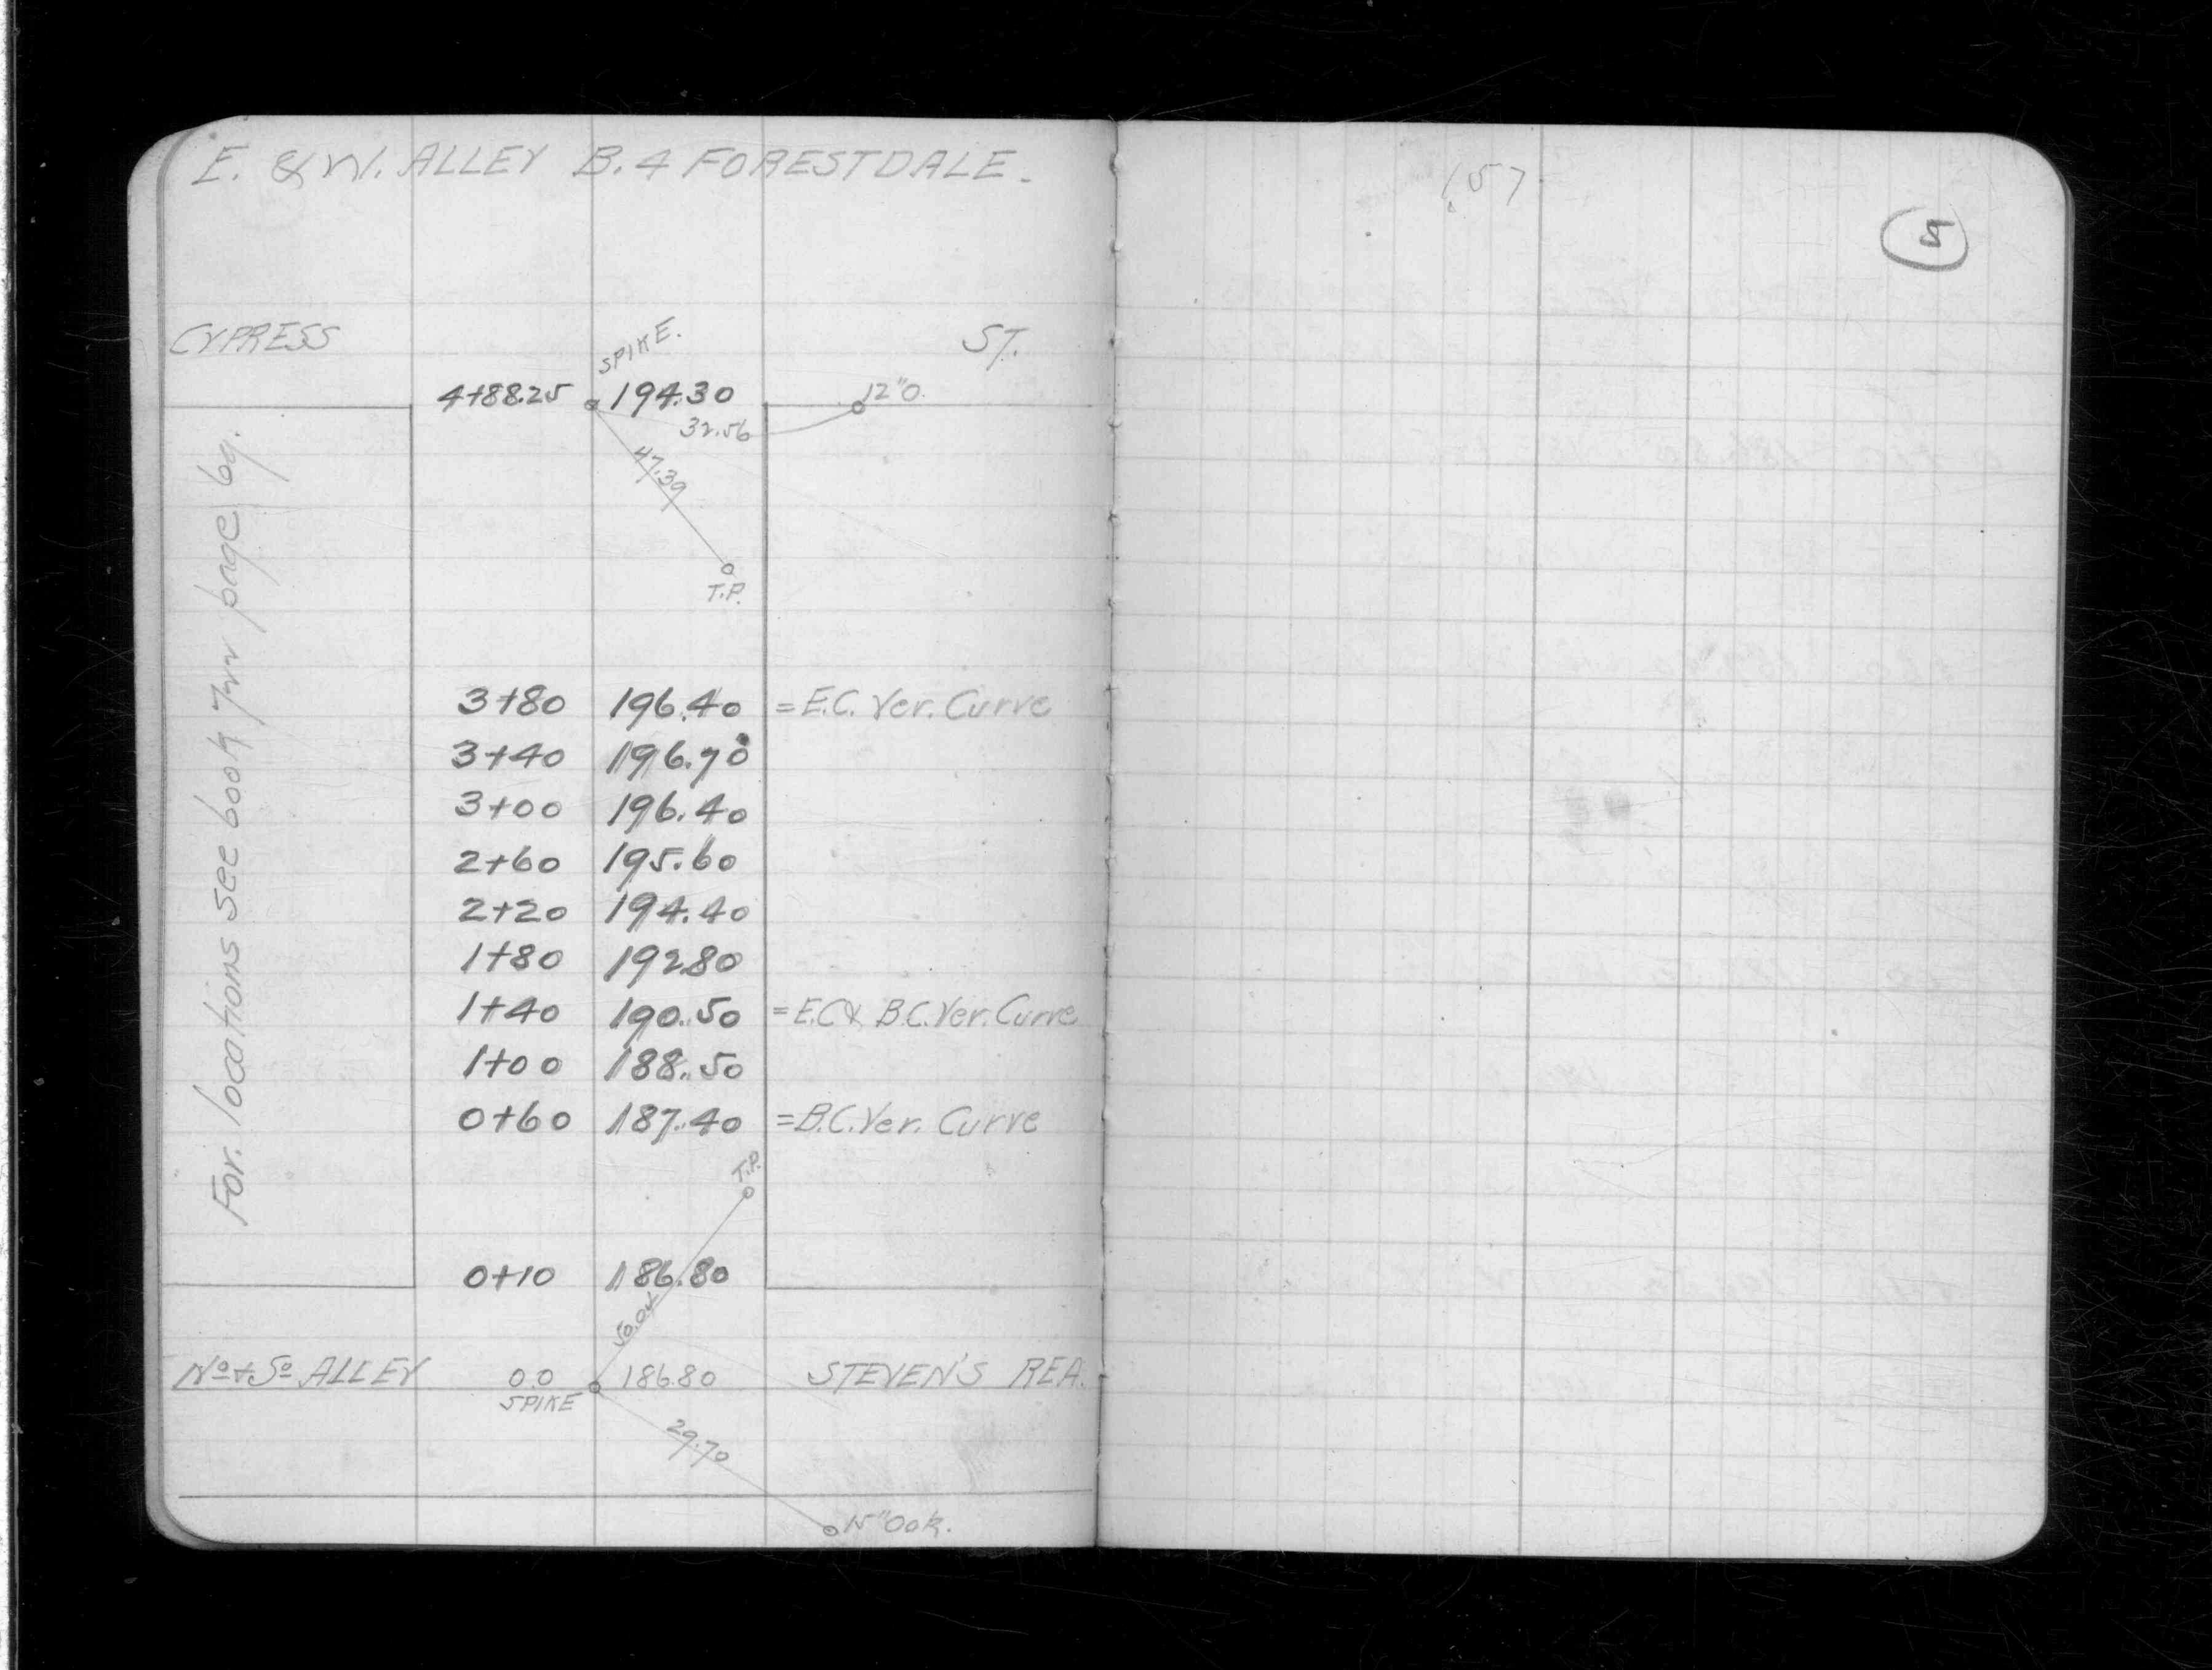 E. & W. ALLEY B.4 FORESTDALE.
CYPRESS ST.
SPIKE.
4+88.25 194.30 12"O.
32.56
47.39
T.P.
For. locations see book page 69.
3+80 196.40 = E.C. Ver. Curve
3+40 196.70
3+00 196.40
2+60 195.60
2+20 194.40
1+80 192.80
1+40 190.50 = E.C & B.C. Ver. Curve
1+00 188.50
0+60 187.40 = B.C. Ver. Curve
T.P.
0+10 186.80
50.04
No & So ALLEY 0.0 186.80 STEVEN'S REA.
SPIKE
29.70
15" Oak.
157
5